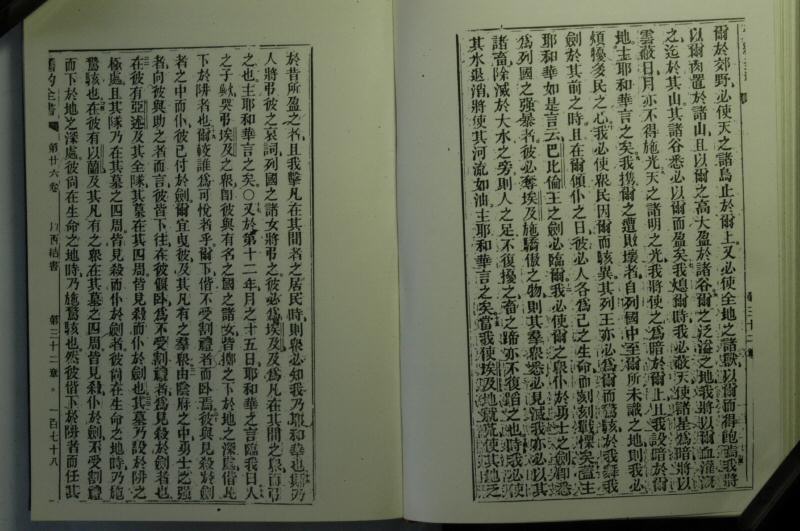 爾於郊野必使天之諸鳥止於爾上又必使全地之諸獸以爾而得飽焉我將
以爾肉置於諸山且以爾之高大盈於諸谷爾之泛溢之地我將以爾血灌溉
之迄於其山其諸谷悉必以爾而盈矣我熄爾時我必蔽天使諸星為暗將以
雲蔽日月亦不得施光天之諸明之光我將使之為暗於爾上且我設暗於爾
地主耶和華言之矣我攜爾之遭敗壞者自列國中至爾所未識之地則我必
煩擾多民之心我必使眾民因爾而駭異其列王亦必為爾而驚駭於我舞我
劍於其前之時且在爾傾仆之日彼必人各為己之生命而刻刻戰慄矣蓋主
耶和華如是言云巴比倫王之劍必臨爾我必使爾之眾仆於勇士之劍即悉
為列國之強暴者彼必奪埃及施驕傲之物則其羣眾悉必見滅我亦必以其
諸畜除滅於大水之旁則人之足不復擾之畜之蹄亦不復蹈之也時我必使
其水退消將使其河流如油主耶和華言之矣當我使埃及地就荒使其地
於昔所盈之者且我擊凡在其間者之居民時則眾必知我乃耶和華也斯乃
人將弔彼之哀詞列國之諸女將弔之彼必為埃及及為凡在其間之眾而弔
之也主耶和華言之矣○又於第十二年月之十五日耶和華之言臨我曰人
之子歟哭弔埃及之眾即彼與有名之國之諸女皆擲之下於地之深處偕此
下於阱者也爾較誰為可悅者乎爾下偕不受割禮者而臥焉彼與見殺於劍
者之中而仆彼已付於劍爾宜曳彼及其凡有之羣眾由陰府之中勇士之強
者向彼與助之者而言彼皆下往在彼偃臥為不受割禮者為見殺於劍者也
在彼有亞述及其全隊其墓在其四周皆見殺而仆於劍也其墓乃設於阱之
極處且其隊乃在其墓之四周皆見殺而仆於劍者彼尚在生命之地時乃施
驚駭也在彼有以蘭及其凡有之眾在其墓之四周皆見殺仆於劍不受割禮
而下於地之深處彼尚在生命之地時乃施驚駭也然彼偕下於阱者而任其
舊約全書 第廿六卷 以西結書 第三十二章 一百七十八